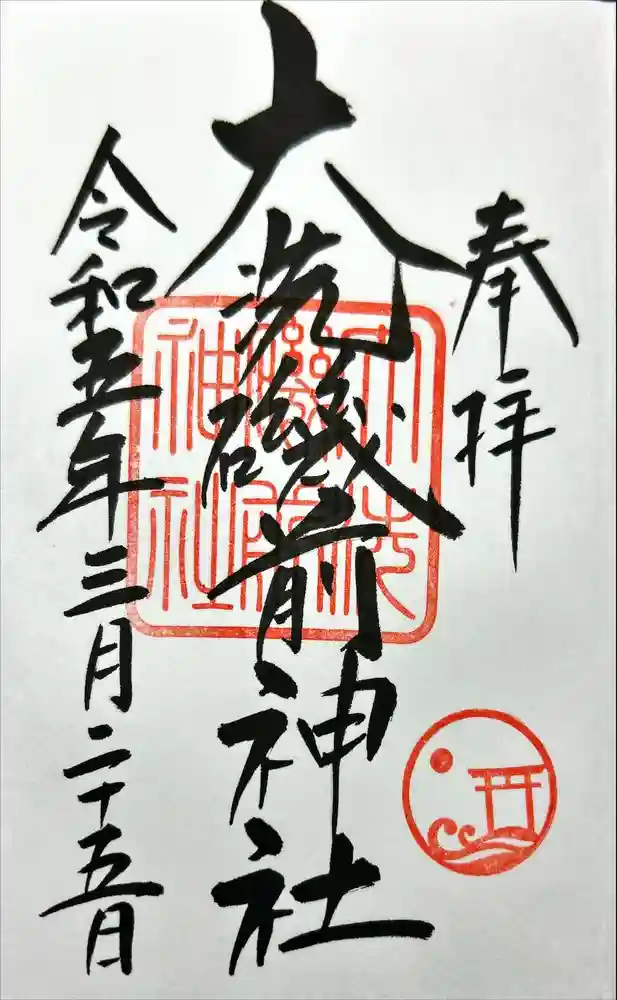 奉拝
大洗磯前神社
大洗磯前神社
令和五年三月二十五日